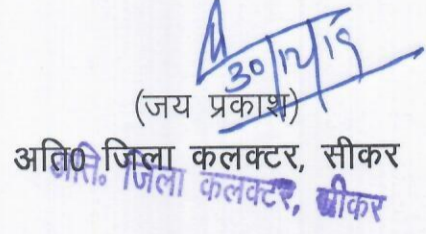 30/12/19
(जय प्रकाश)
अति0 जिला कलक्टर, सीकर
अति. जिला कलक्टर, सीकर